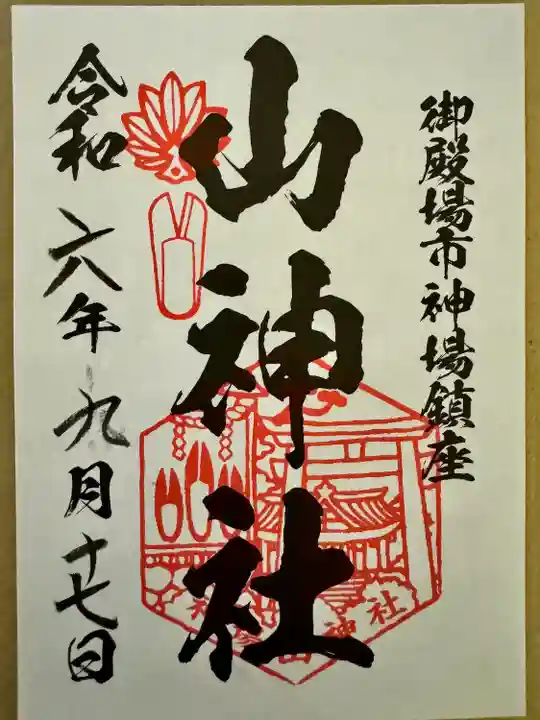 御殿場市神場鎮座
山神社
令和六年九月十七日
神場山神社